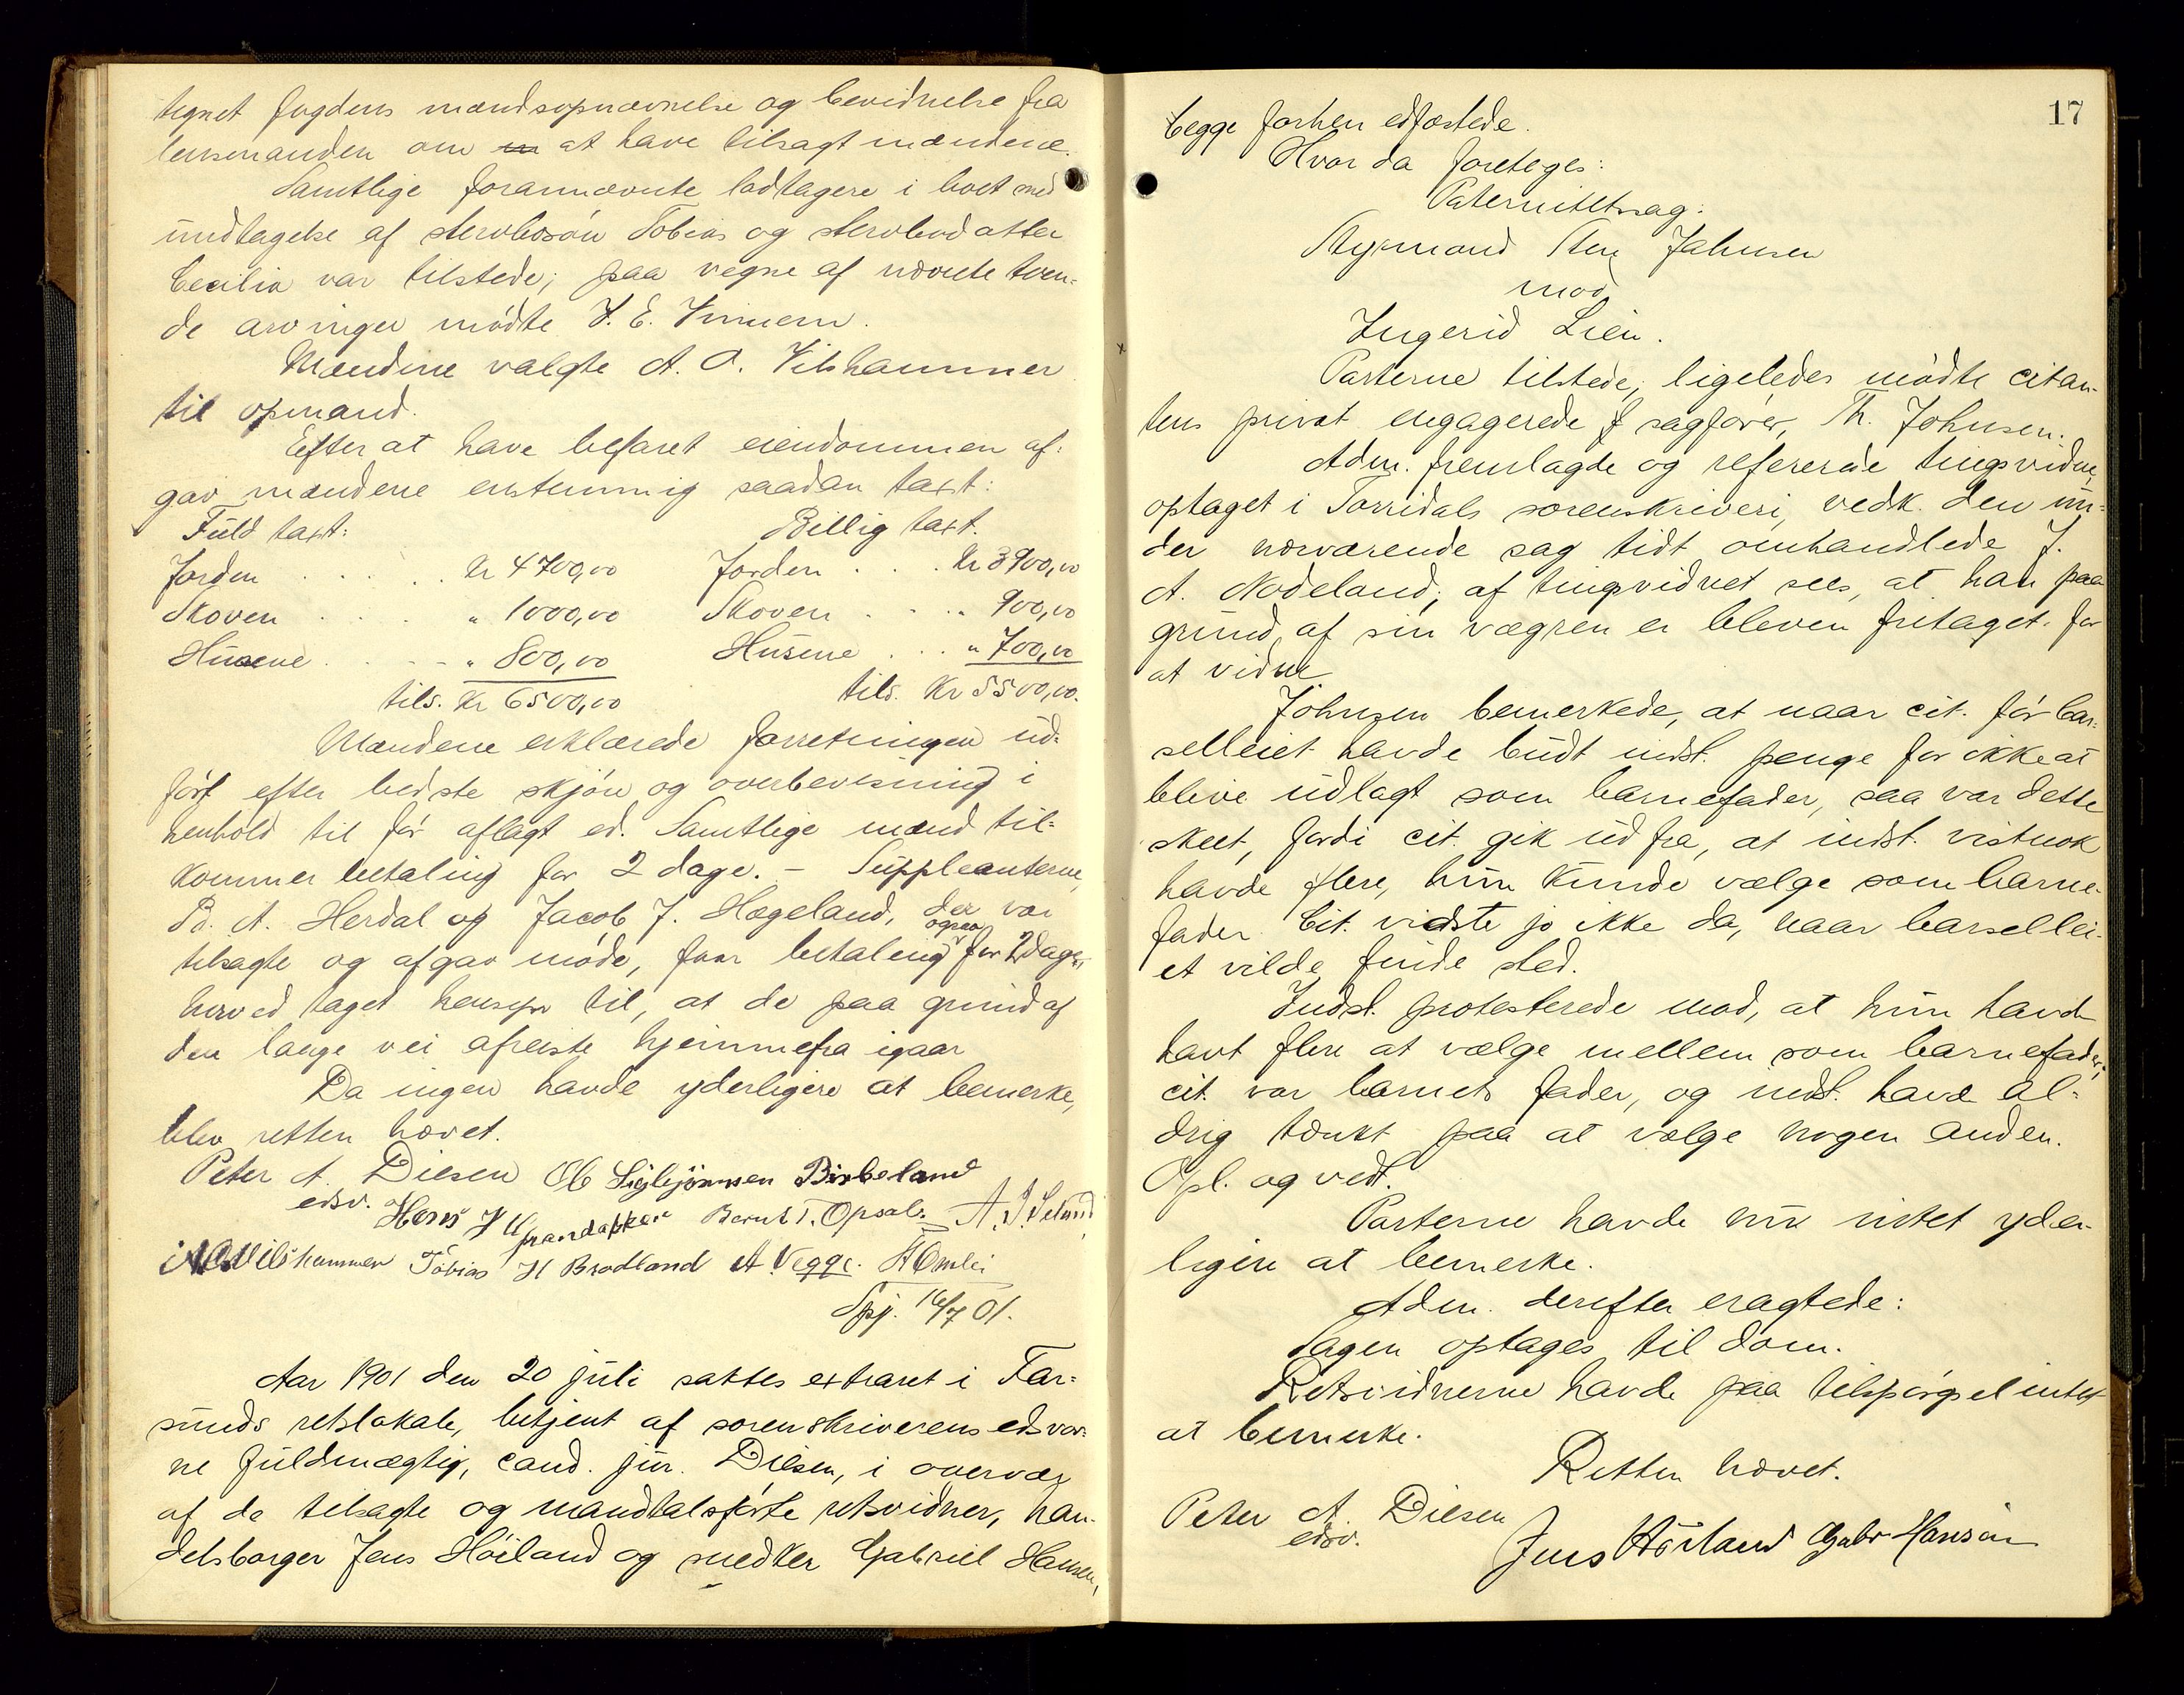 tegnet fogdens mandsopnævnelse og bevidnelse fra
lensmanden om at have tilsagt mændene.
Samtlige forannævnte lodtagere i boet med
undtagelse af stervbosøn Tobias og stervbodatter
Cecilia var tilstede; paa vegne af nævnte tven-
de arvinger mødte J. E. Vinnem.
Mændene valgte A. O. Vilshammer
til opmand.
Efter at have befaret eiendommen af-
gav mændene enstemmig saadan taxt:
Fuld taxt: Billig taxt.
Jorden . . . . . kr 4700,00 Jorden . . . kr 3900,00
Skoven . . . . " 1000,00 Skoven . . . " 900,00
Husene . . . . " 800,00 Husene . . . " 700,00
tils. kr 6500,00 tils. kr 5500,00.
Mændene erklærede forretningen ud-
ført efter bedste skjøn og overbevisning i
henhold til før aflagt ed. Samtlige mænd til-
kommer betaling for 2 dage. - Suppleanterne,
B. A. Herdal og Jacob J. Hægeland, der var
tilsagte og afgav møde, faar betaling ogsaa for 2 dage,
herved taget hensyn til, at de paa grund af
den lange vei afreiste hjemmefra igaar
Da ingen havde yderligere at bemerke,
blev retten hævet.
Peter A. Diesen Ole Sigbjörnsen Birkeland
edsv. Hans J Bernt T. Opsal. A. J. Selund
A O Vilshammer Tobias H Brodland A Vegge. H Omlei
Spj. 16/7 01.
Aar 1901 den 20 juli sattes extraret i Far-
sunds retslokale, betjent af sorenskriverens edsvor-
ne fuldmægtig, cand. jur. Diesen, i overvær
af de tilsagte og mandtalsførte retsvidner, han-
delsborger Jens Höiland og snedker Gabriel Hansen,
17
begge forhen edfæstede.
Hvor da foretoges:
Paternitetssag:
Styrmand Sten Jahnsen
mod
Ingerid Lien.
Parterne tilstede; ligeledes mødte citan-
tens privat engagerede sagfører, Th. Johnsen.
Adm. fremlagde og refererede tingsvidne,
optaget i Torridals sorenskriveri, vedk. den un-
der nærværende sag tidt omhandlede J.
A. Nodeland; af tingsvidnet sees, at han paa
grund af sin vægren er bleven fritaget for
at vidne
Johnsen bemerkede, at naar cit. før bar-
selleiet havde budt indst. penge for ikke at
blive udlagt som barnefader, saa var dette
skeet, fordi cit. gik ud fra, at indst. vistnok
havde flere, hun kunde vælge som barne-
fader. Cit. vidste jo ikke da, naar barsellei-
et vilde finde sted.
Indst. protesterede mod, at hun havde
havt flere at vælge mellem som barnefader;
cit. var barnets fader, og indst. havde al-
drig tænkt paa at vælge nogen anden.
Opl. og vedt.
Parterne havde nu intet yder-
ligere at bemerke.
Adm. derefter eragtede:
Sagen optages til dom.
Retsvidnerne havde paa tilspørgsel intet
at bemerke.
Retten hævet.
Peter A. Diesen
edsv. Jens Höiland Gabr Hansen